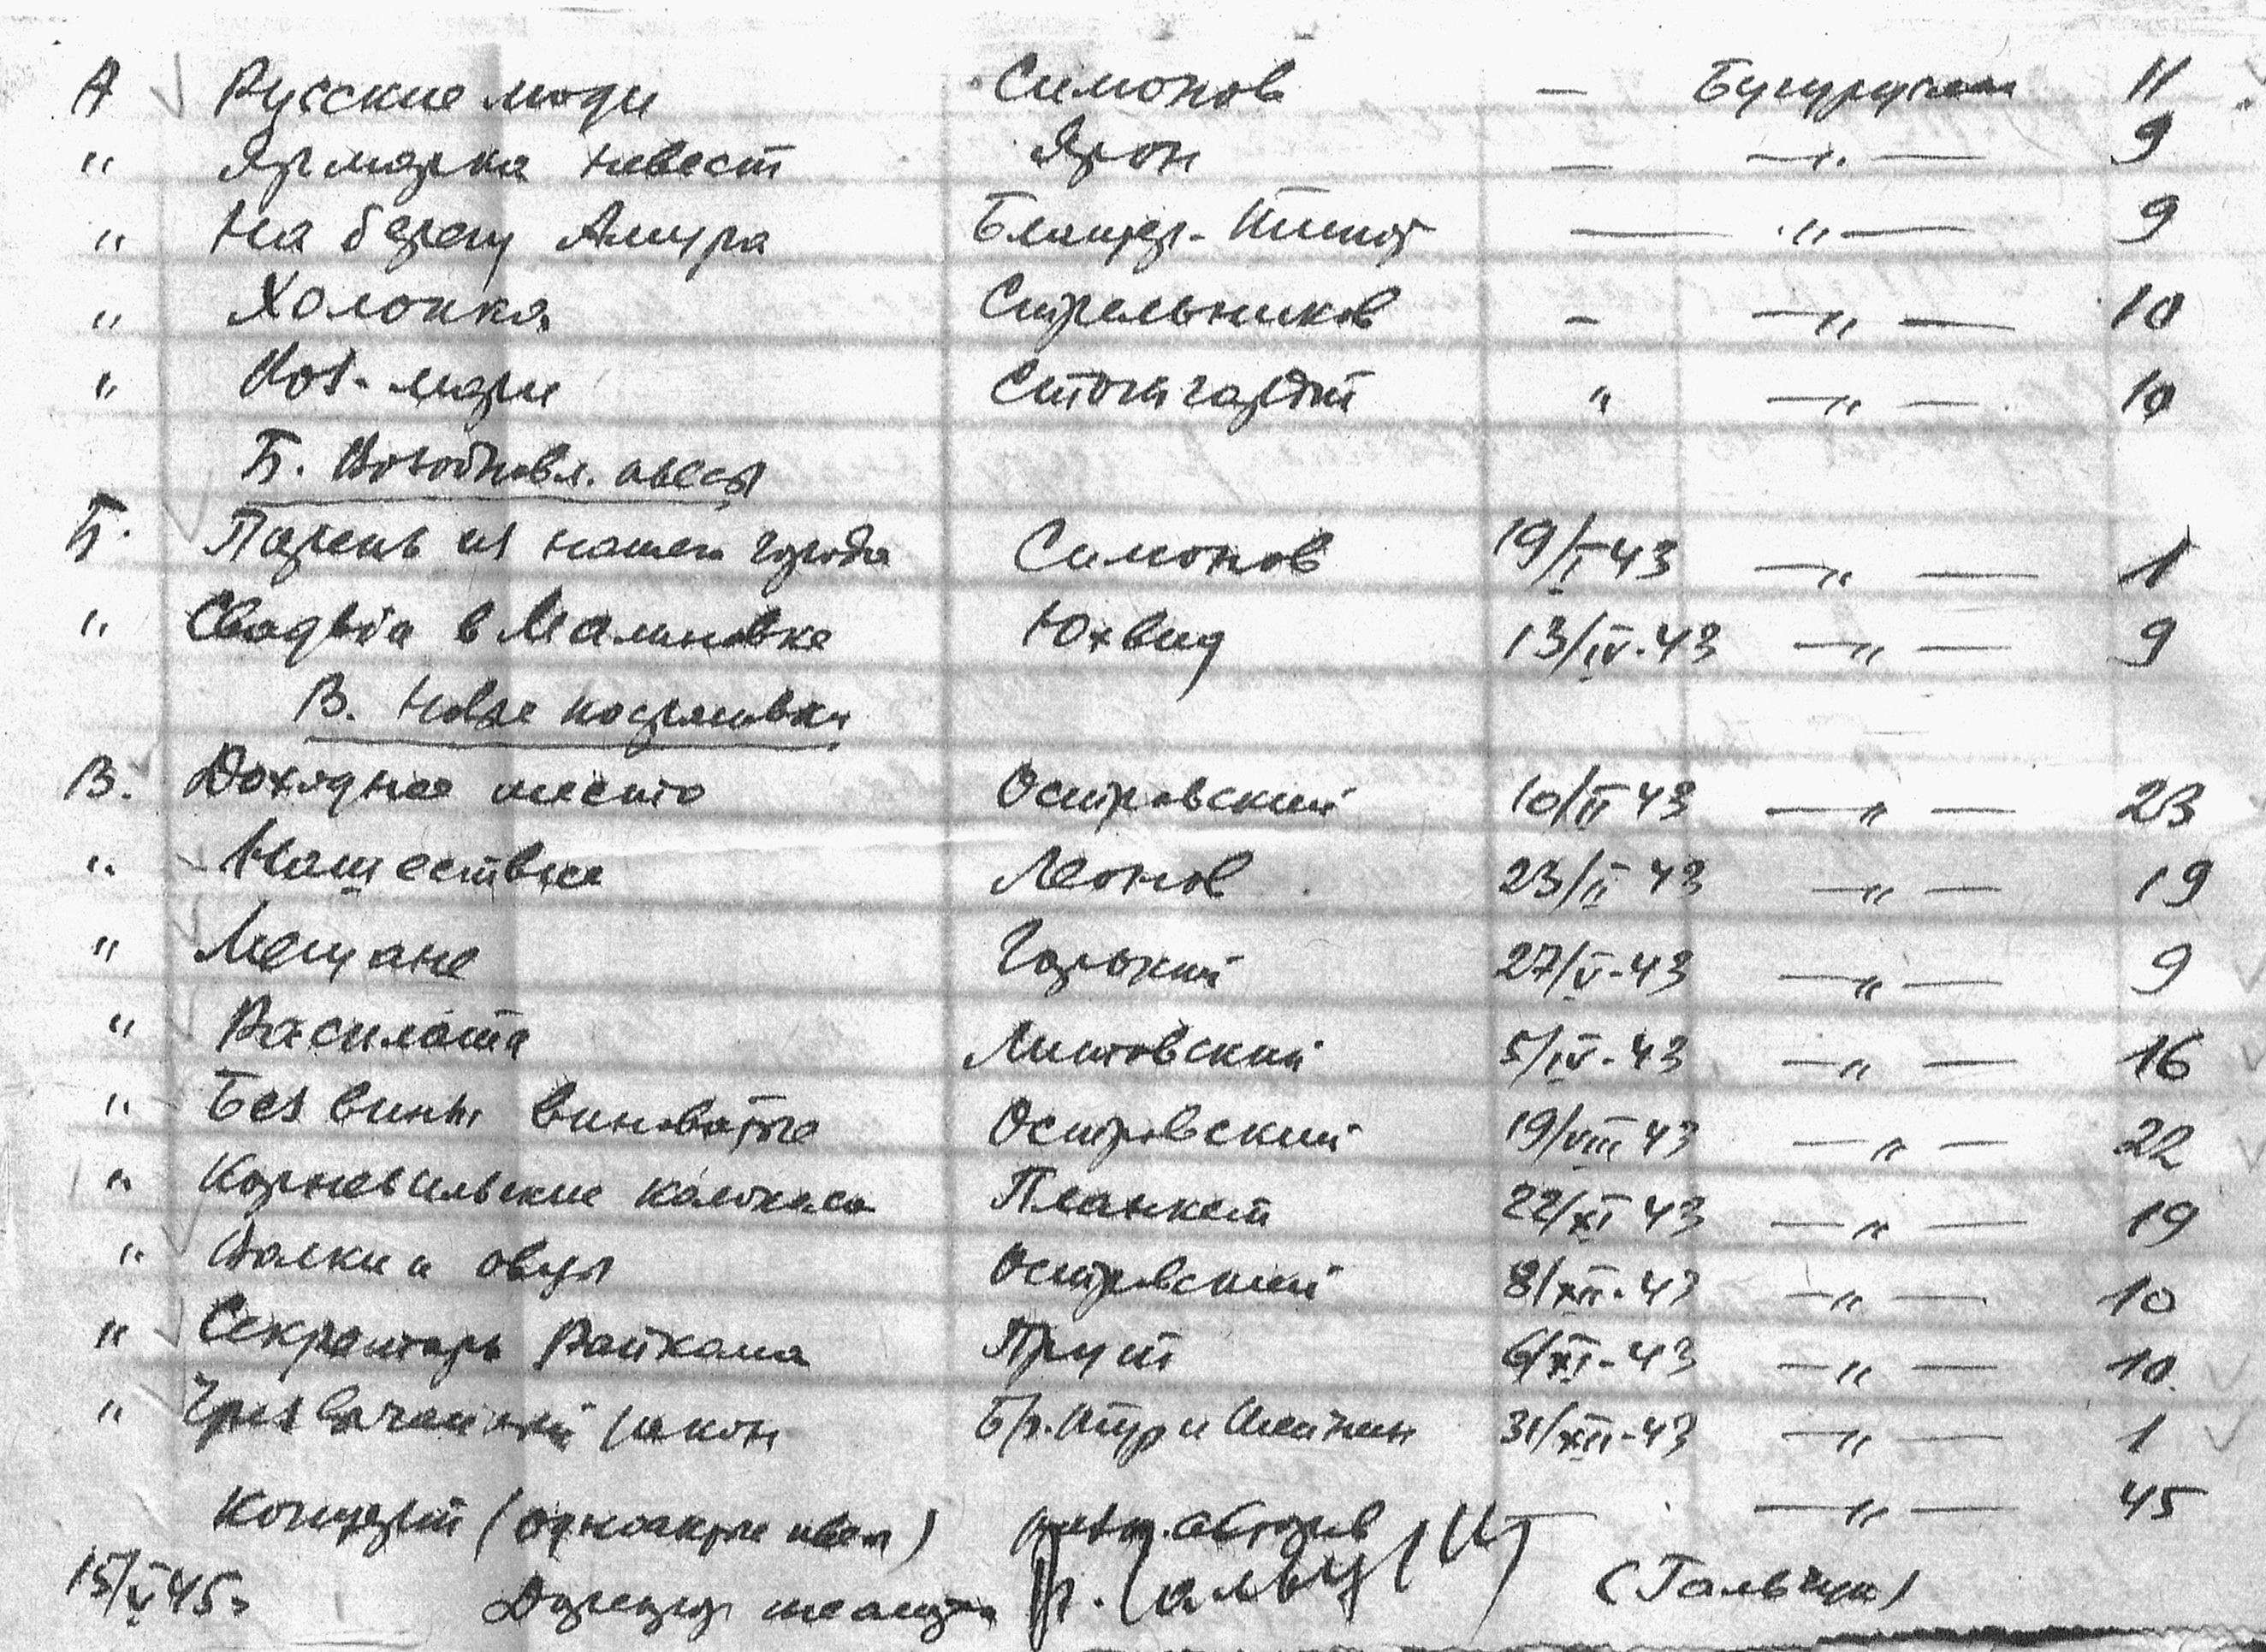 А Русские люди Симонов — Бугуруслан 11
" Ярмарка невест Ярон — —"— 9
" На берегу Амура Блантер- — —"— 9
" Холопка Стрельников - —"— 10
" Роз-мари Стотгардт " —"— 10
Б. Возобновл. пьесы
Б. Парень из нашего города Симонов 19/I 43 —"— 1
" Свадьба в Малиновке Юхвид 13/IV-43 —"— 9
В. Новые постановки
В. Доходное место Островский 10/II 43 —"— 23
" Нашествие Леонов 23/II 43 —"— 19
" Мещане Горький 27/V-43 —"— 9
" Василета Литовский 5/IV-43 —"— 16
" Без вины виноватые Островский 19/VIII 43 —"— 22
" Корневильские колокола Планкет 22/XI 43 —"— 19
" Волки и овцы Островский 8/XII-43 —"— 10
" Секретарь Райкома Прут 6/XI-43 —"— 10
" Чрезвычайный закон Бр. Тур и Шейнин 31/XII-43 —"— 1
Концерт (одноактные пьесы) разн. авторов — —"— 45
15/V 45г Директор театра (Гальчук)